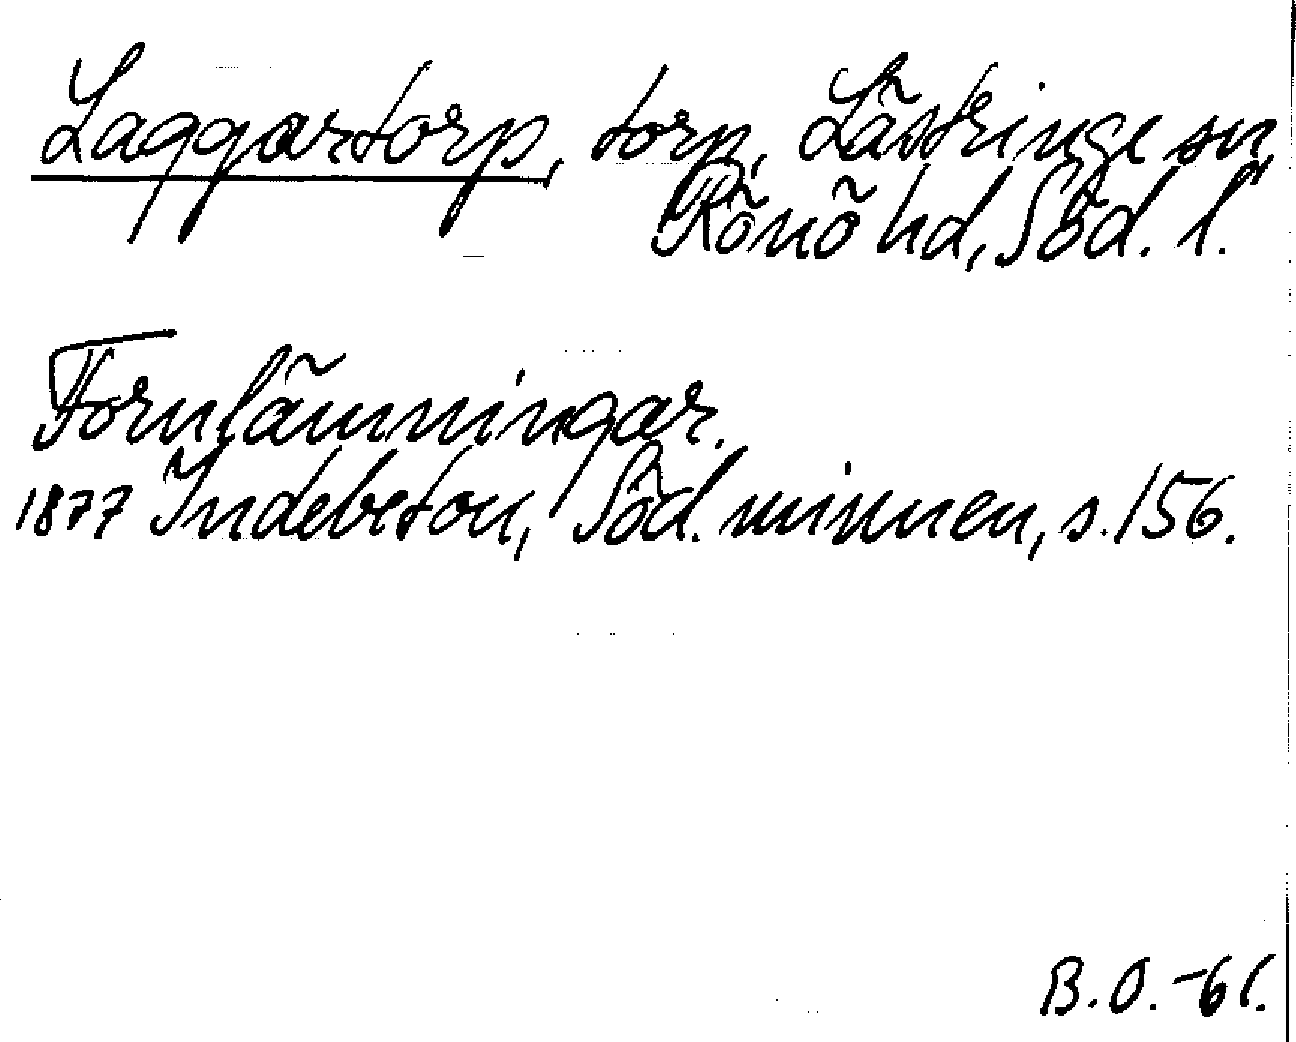 Laggartorp, torp, Lästringe sn,
Rönö hd, Söd. l.
Fornlämningar.
1877 Indebetou, Söd. minnen, s. 156.
B.O.-61.